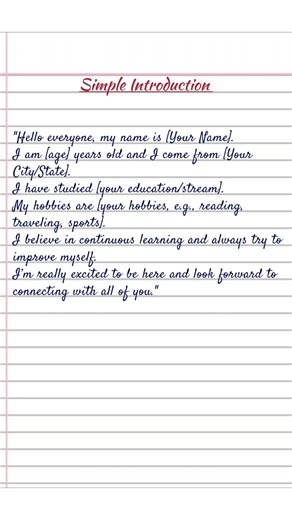 Simple Introduction
"Hello everyone, my name is [Your Name].
I am [age] years old and I come from [Your
City/State].
I have studied [your education/stream].
My hobbies are [your hobbies, e.g., reading,
traveling, sports].
I believe in continuous learning and always try to
improve myself.
I'm really excited to be here and look forward to
connecting with all of you."